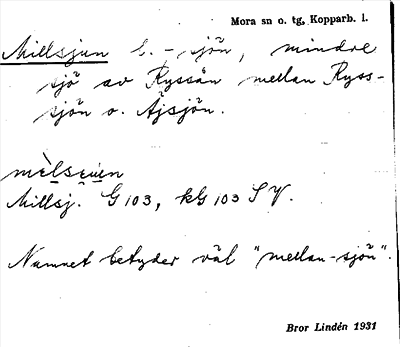 Mora sn o. tg, Kopparb. l.
Millsjun l. -sjön, mindre
sjö av Ryssån mellan Ryss-
sjön o. Ajsjön.
Millsj. G 103, kG 103 S V.
Namnet betyder väl "mellan-sjön".
Bror Lindén 1931